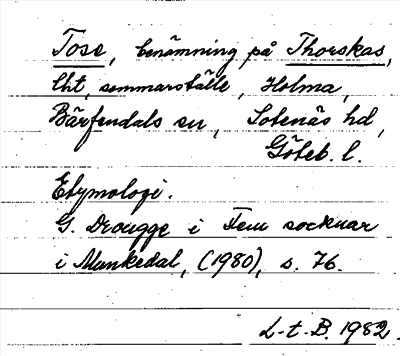 Tose, benämning på Thorskas,
lht, sommarställe, Holma,
Bärfendals sn, Sotenäs hd,
Göteb. l.
Etymologi.
G. Drougge i Fem socknar
i Munkedal, (1980), s. 76.
L-t. B. 1982.